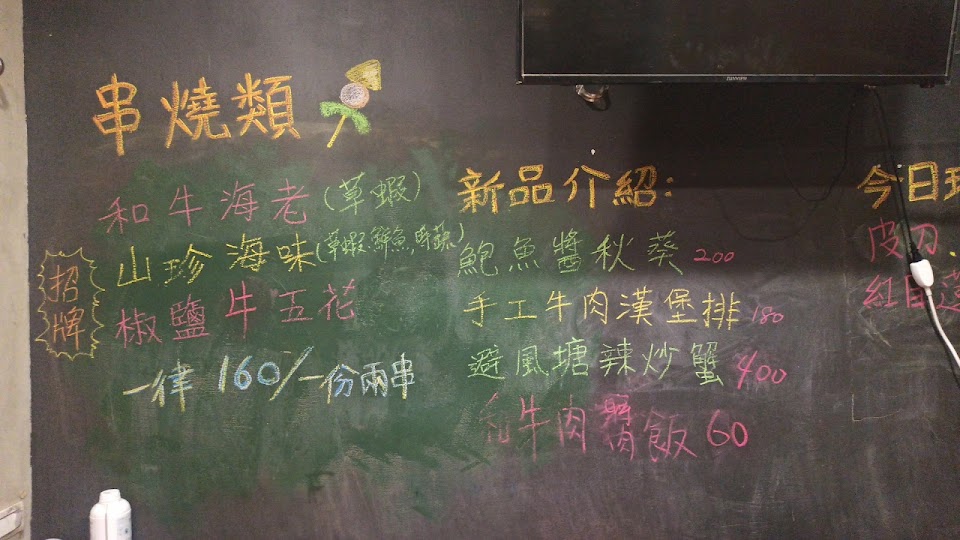 串燒類
招牌
和牛海老(草蝦)
山珍海味(草蝦.鮮魚.時蔬)
椒鹽牛五花
一律 160/一份兩串
新品介紹:
鮑魚醬秋葵 200
手工牛肉漢堡排 180
避風塘辣炒蟹 400
和牛肉醬飯 60
今日
皮刀
紅目